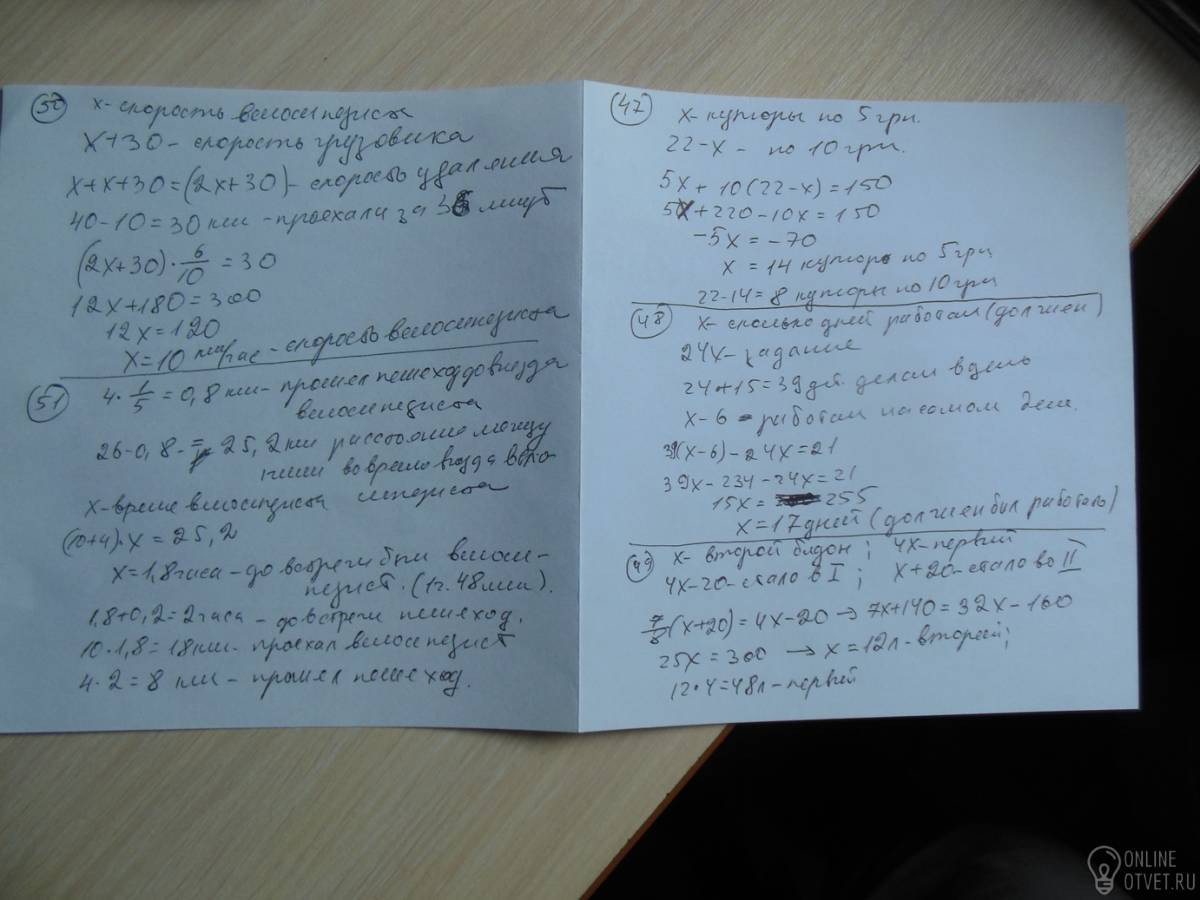 50 x - скорость велосипедиста
x+30 - скорость грузовика
x+x+30=(2x+30) - скорость удаления
40-10=30 км - проехали за 36 минут
(2x+30)·6/10=30
12x+180=300
12x=120
x=10 км/час - скорость велосипедиста
51 4·1/5=0,8 км - прошел пешеход до выезда
велосипедиста
26-0,8=25,2 км расстояние между
ними во время выезда вело-
сипедиста
x - время велосипедиста
(10+4)·x=25,2
x=1,8 часа - до встречи был велоси-
педист. (1ч. 48 мин).
1,8+0,2=2 часа - до встречи пешеход.
10·1,8=18 км - проехал велосипедист
4·2=8 км - прошел пешеход.
47 x - купюры по 5 грн.
22-x - по 10 грн.
5x+10(22-x)=150
5x+220-10x=150
-5x=-70
x=14 купюр по 5 грн
22-14=8 купюры по 10 грн
48 x - сколько дней работал (должен)
24x - задание
24+15=39 дет. делал в день
x-6 - работал на самом деле.
39(x-6)-24x=21
39x-234-24x=21
15x=255
x=17 дней (должен был работать)
49 x - второй бидон; 4x - первый
4x-20 - стало в I; x+20 - стало во II
7/8(x+20)=4x-20 → 7x+140=32x-160
25x=300 → x=12л - второй;
12·4=48л - первый
ONLINE
OTVET.RU